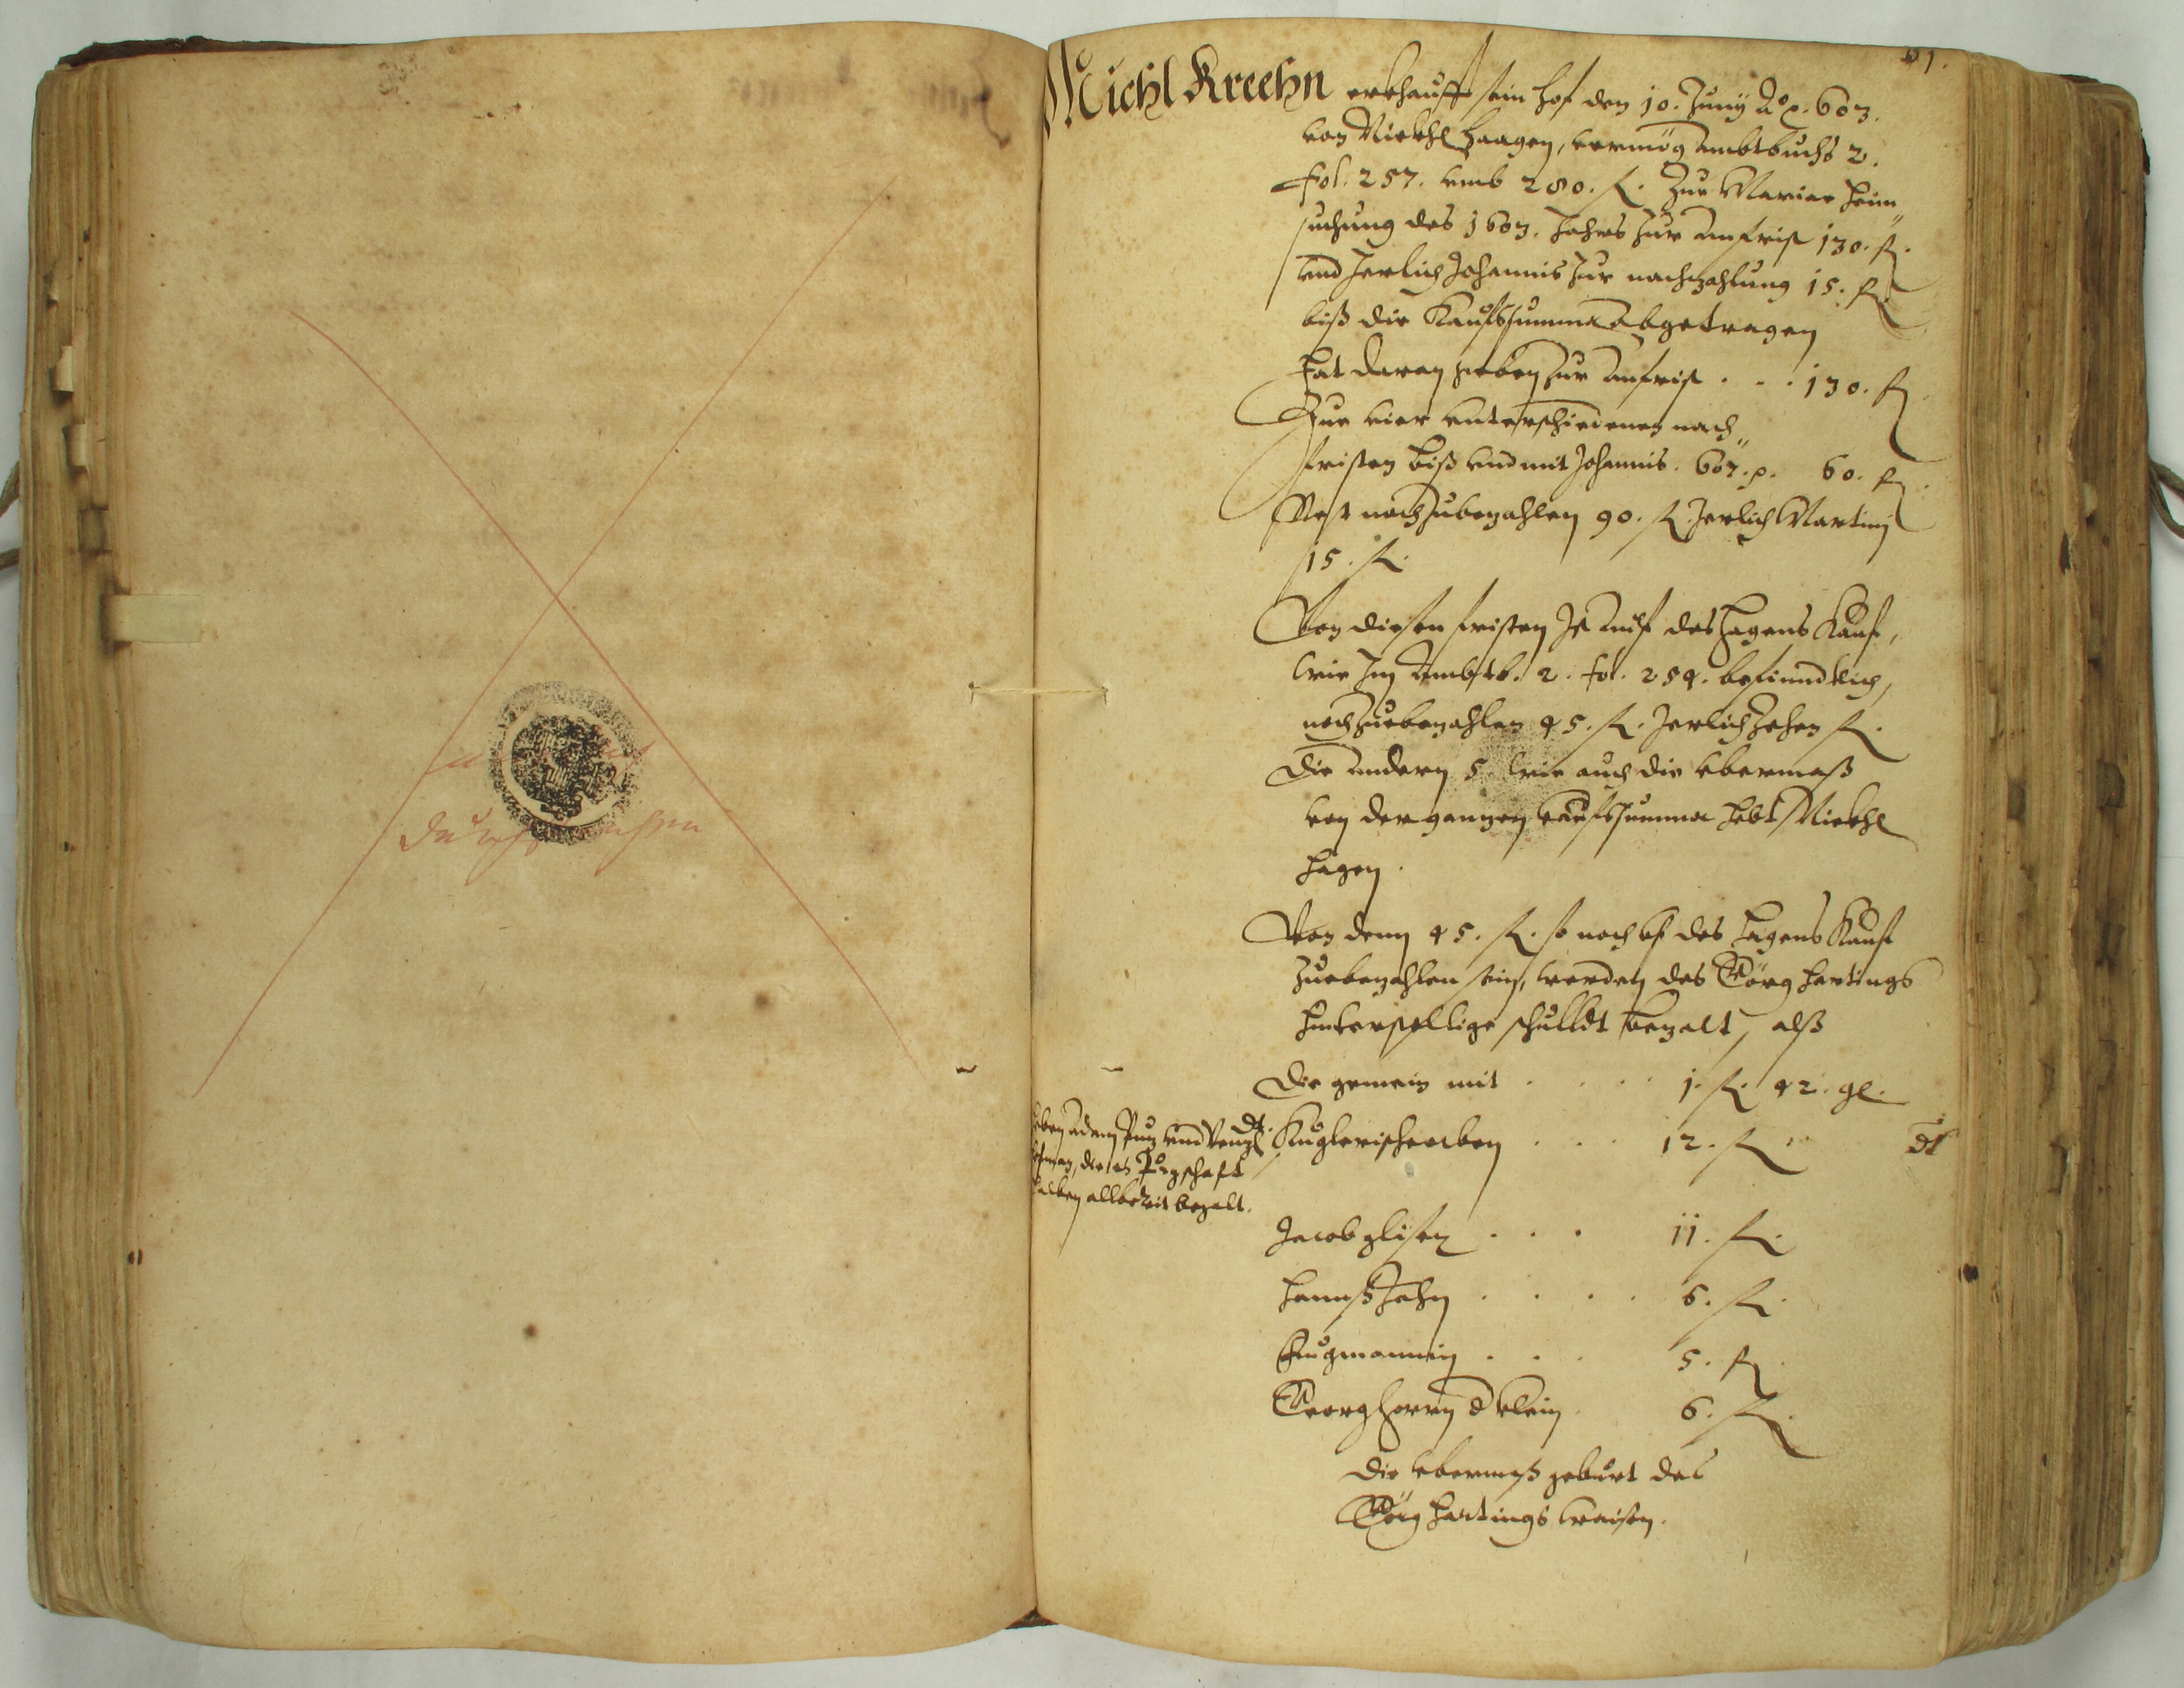 91.
Michl Kreehn erkhaufft sein hof den 10. Juny Ao p. 603.
von Nickhl Haagen, vermög Ambtbuchs 2.
fol. 257. umb 280. fl. Zue Mariae heim„
suchung des 1603. Jahrs zur anfrist 130. fl.
und Jerlich Johannis zur nachzahlung 15. fl.
biß die Kaufssumma Abgetragen
hat daran geben zur anfrist . . . 130. fl
Zue vier unterschiedenen nach„
fristen biß und mit Johannis. 607. p. 60. fl.
Rest noch zubezahlen 90. fl. Jerlich Martinj
15. fl.
Von diesen fristen Ist auf des Hagens Kauf,
wie Im Ambtb. 2. fol. 254. befiendtlich,
noch zuebezahlen 45. fl. Jerlich zehen fl.
die andern 5. wie auch die ubermaß
von der ganzen kaufssumma hebt Nickhl
Hagen.
Von denn 45. fl. so noch uf des Hagens Kauf
zuebezahlen sein, werden des Görg Hartings
hinterstellige schuldt bezalt, alß
Die gemein mit . . . . 1. fl. 42. gl.
dt. Kuglerischen erben . . . 12. fl. dt
halben allbereit bezalt.
Jacob glisen . . . 11. fl.
Hannß Jahn . . . . 6. fl.
. . . 5. fl.
Georg horrn d klein. 6. fl.
die ubermaß gebürt des
Görg Hartings waisen.